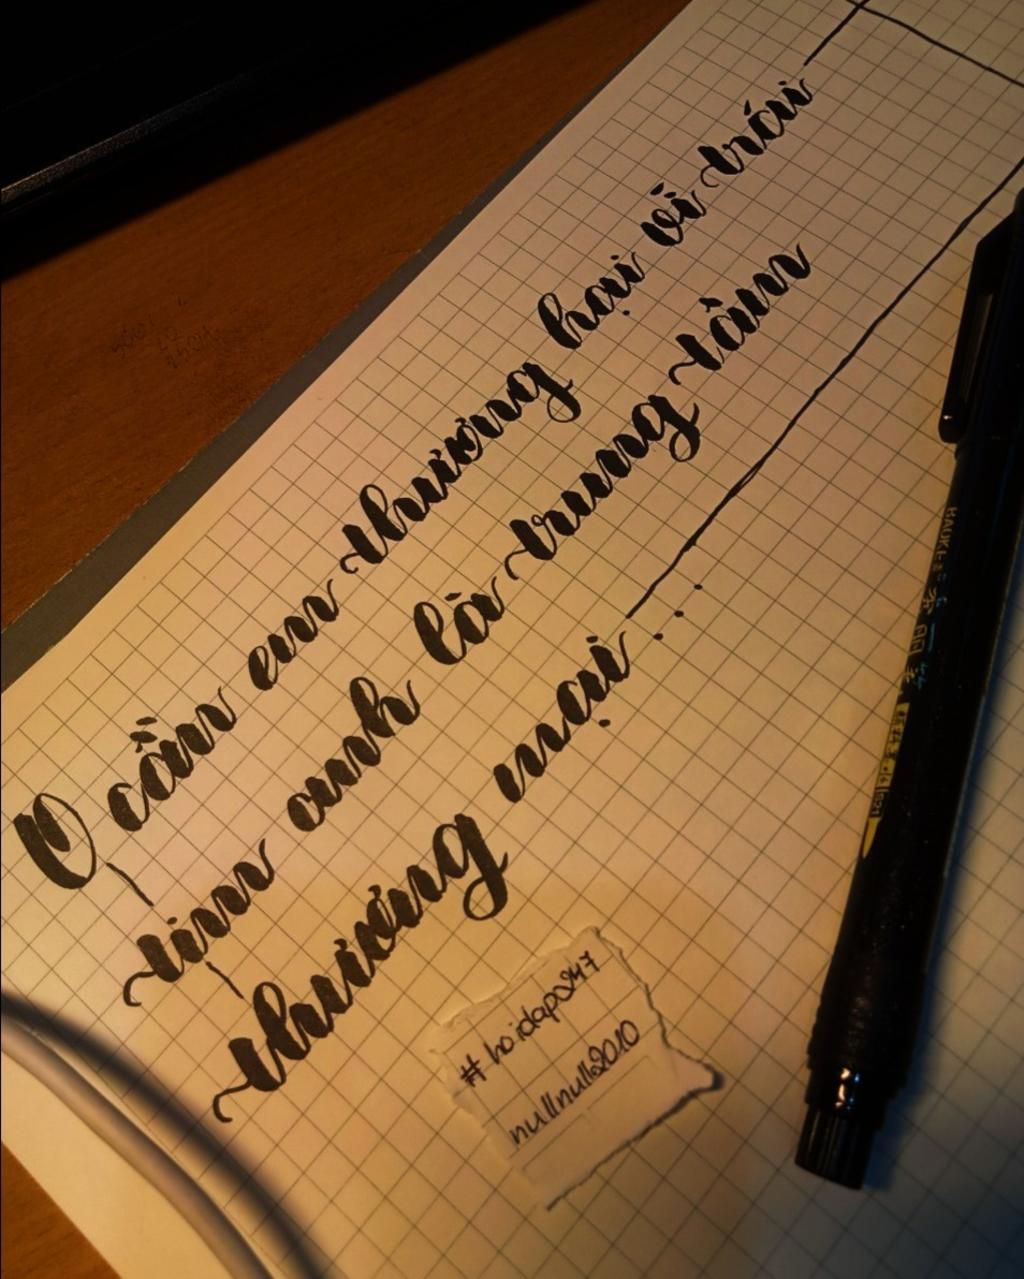 O cần em thương hại vì trái
tim anh là trung tâm
thương mại...
#hoidap247
nullnull2010